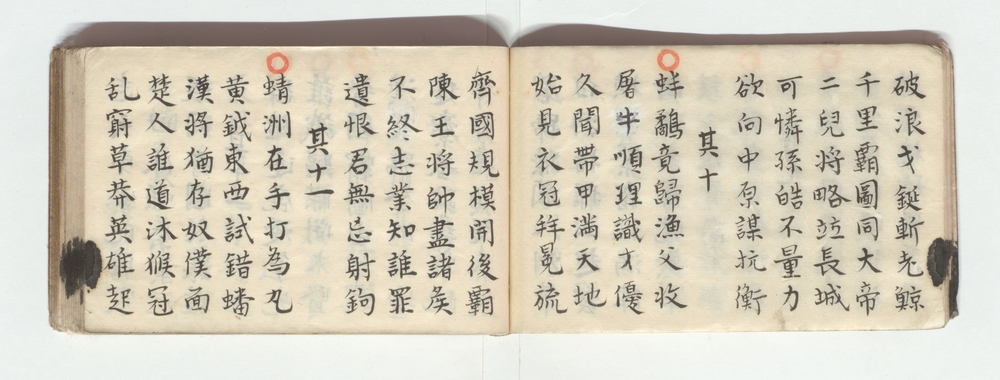 破浪戈鋋斬老鯨
千里霸圖同大帝
二兒將略竝長城
可憐孫皓不量力
欲向中原謀抗衡
其十
蚌鷸竟歸漁父收
屠牛順理識才優
久聞帶甲満天地
始見衣冠拜冕旒
齊國規模開後霸
陳王將帥盡諸矦
不終志業知誰罪
遺恨君無忌射鉤
其十一
蜻洲在手打為丸
黄鉞東西試錯蟠
漢將猶存奴僕面
楚人誰道沐猴冠
乱竆草莽英雄起